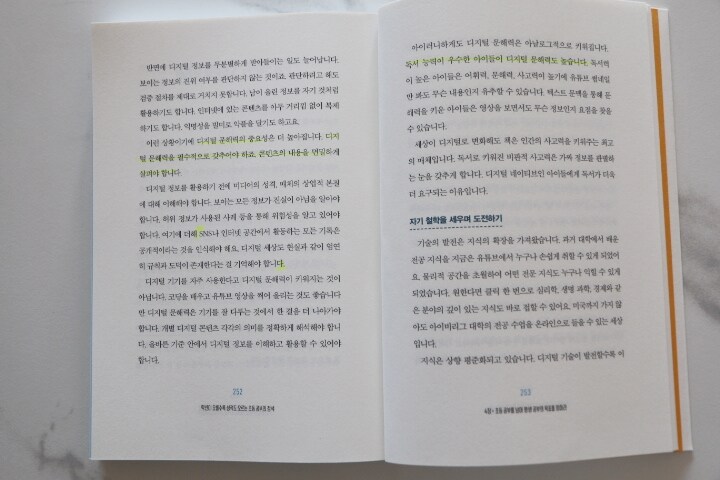 반면에 디지털 정보를 무분별하게 받아들이는 일도 늘어납니다.
보이는 정보의 진위 여부를 판단하지 않는 것이죠. 판단하려고 해도
검증 절차를 제대로 거치지 못합니다. 남이 올린 정보를 자기 것처럼
활용하기도 합니다. 인터넷에 있는 콘텐츠를 아무 거리낌 없이 복제
하기도 합니다. 익명성을 빌미로 악플을 달기도 하고요.
이런 상황이기에 디지털 문해력의 중요성은 더 높아집니다. 디지
털 문해력을 필수적으로 갖추어야 하죠. 콘텐츠의 내용을 면밀하게
살펴야 합니다.
디지털 정보를 활용하기 전에 미디어의 성격, 매체의 상업적 본질
에 대해 이해해야 합니다. 보이는 모든 정보가 진실이 아님을 알아야
합니다. 허위 정보가 사용된 사례 등을 통해 위험성을 알고 있어야
합니다. 여기에 더해 SNS나 인터넷 공간에서 활동하는 모든 기록은
공개적이라는 것을 인식해야 해요. 디지털 세상도 현실과 같이 엄연
히 규칙과 도덕이 존재한다는 걸 기억해야 합니다.
디지털 기기를 자주 사용한다고 디지털 문해력이 키워지는 것이
아닙니다. 코딩을 배우고 유튜브 영상을 찍어 올리는 것도 좋습니다
만 디지털 문해력은 기기를 잘 다루는 것에서 한 걸 더 나아가야
합니다. 개별 디지털 콘텐츠 각각의 의미를 정확하게 해석해야 합니
다. 올바른 기준 안에서 디지털 정보를 이해하고 활용할 수 있어야
합니다.
252
아이러니하게도 디지털 문해력은 아날로그적으로 키워집니다.
독서 능력이 우수한 아이들이 디지털 문해력도 높습니다. 독서력
이 높은 아이들은 어휘력, 문해력, 사고력이 높기에 유튜브 썸네일
만 봐도 무슨 내용인지 유추할 수 있습니다. 텍스트 문맥을 통해 문
해력을 키운 아이들은 영상을 보면서도 무슨 정보인지 요점을 찾을
수 있습니다.
세상이 디지털로 변화해도 책은 인간의 사고력을 키워주는 최고
의 매체입니다. 독서로 키워진 비판적 사고력은 가짜 정보를 판별하
는 눈을 갖추게 합니다. 디지털 네이티브인 아이들에게 독서가 더욱
더 요구되는 이유입니다.
자기 철학을 세우며 도전하기
기술의 발전은 지식의 확장을 가져왔습니다. 과거 대학에서 배운
전공 지식을 지금은 유튜브에서 누구나 손쉽게 취할 수 있게 되었어
요. 물리적 공간을 초월하여 어떤 전문 지식도 누구나 익힐 수 있게
되었습니다. 원한다면 클릭 한 번으로 심리학, 생명 과학, 경제와 같
은 분야의 깊이 있는 지식도 바로 접할 수 있어요. 미국까지 가지 않
아도 아이비리그 대학의 전공 수업을 온라인으로 들을 수 있는 세상
입니다.
지식은 상향 평준화되고 있습니다. 디지털 기술이 발전할수록 어
253